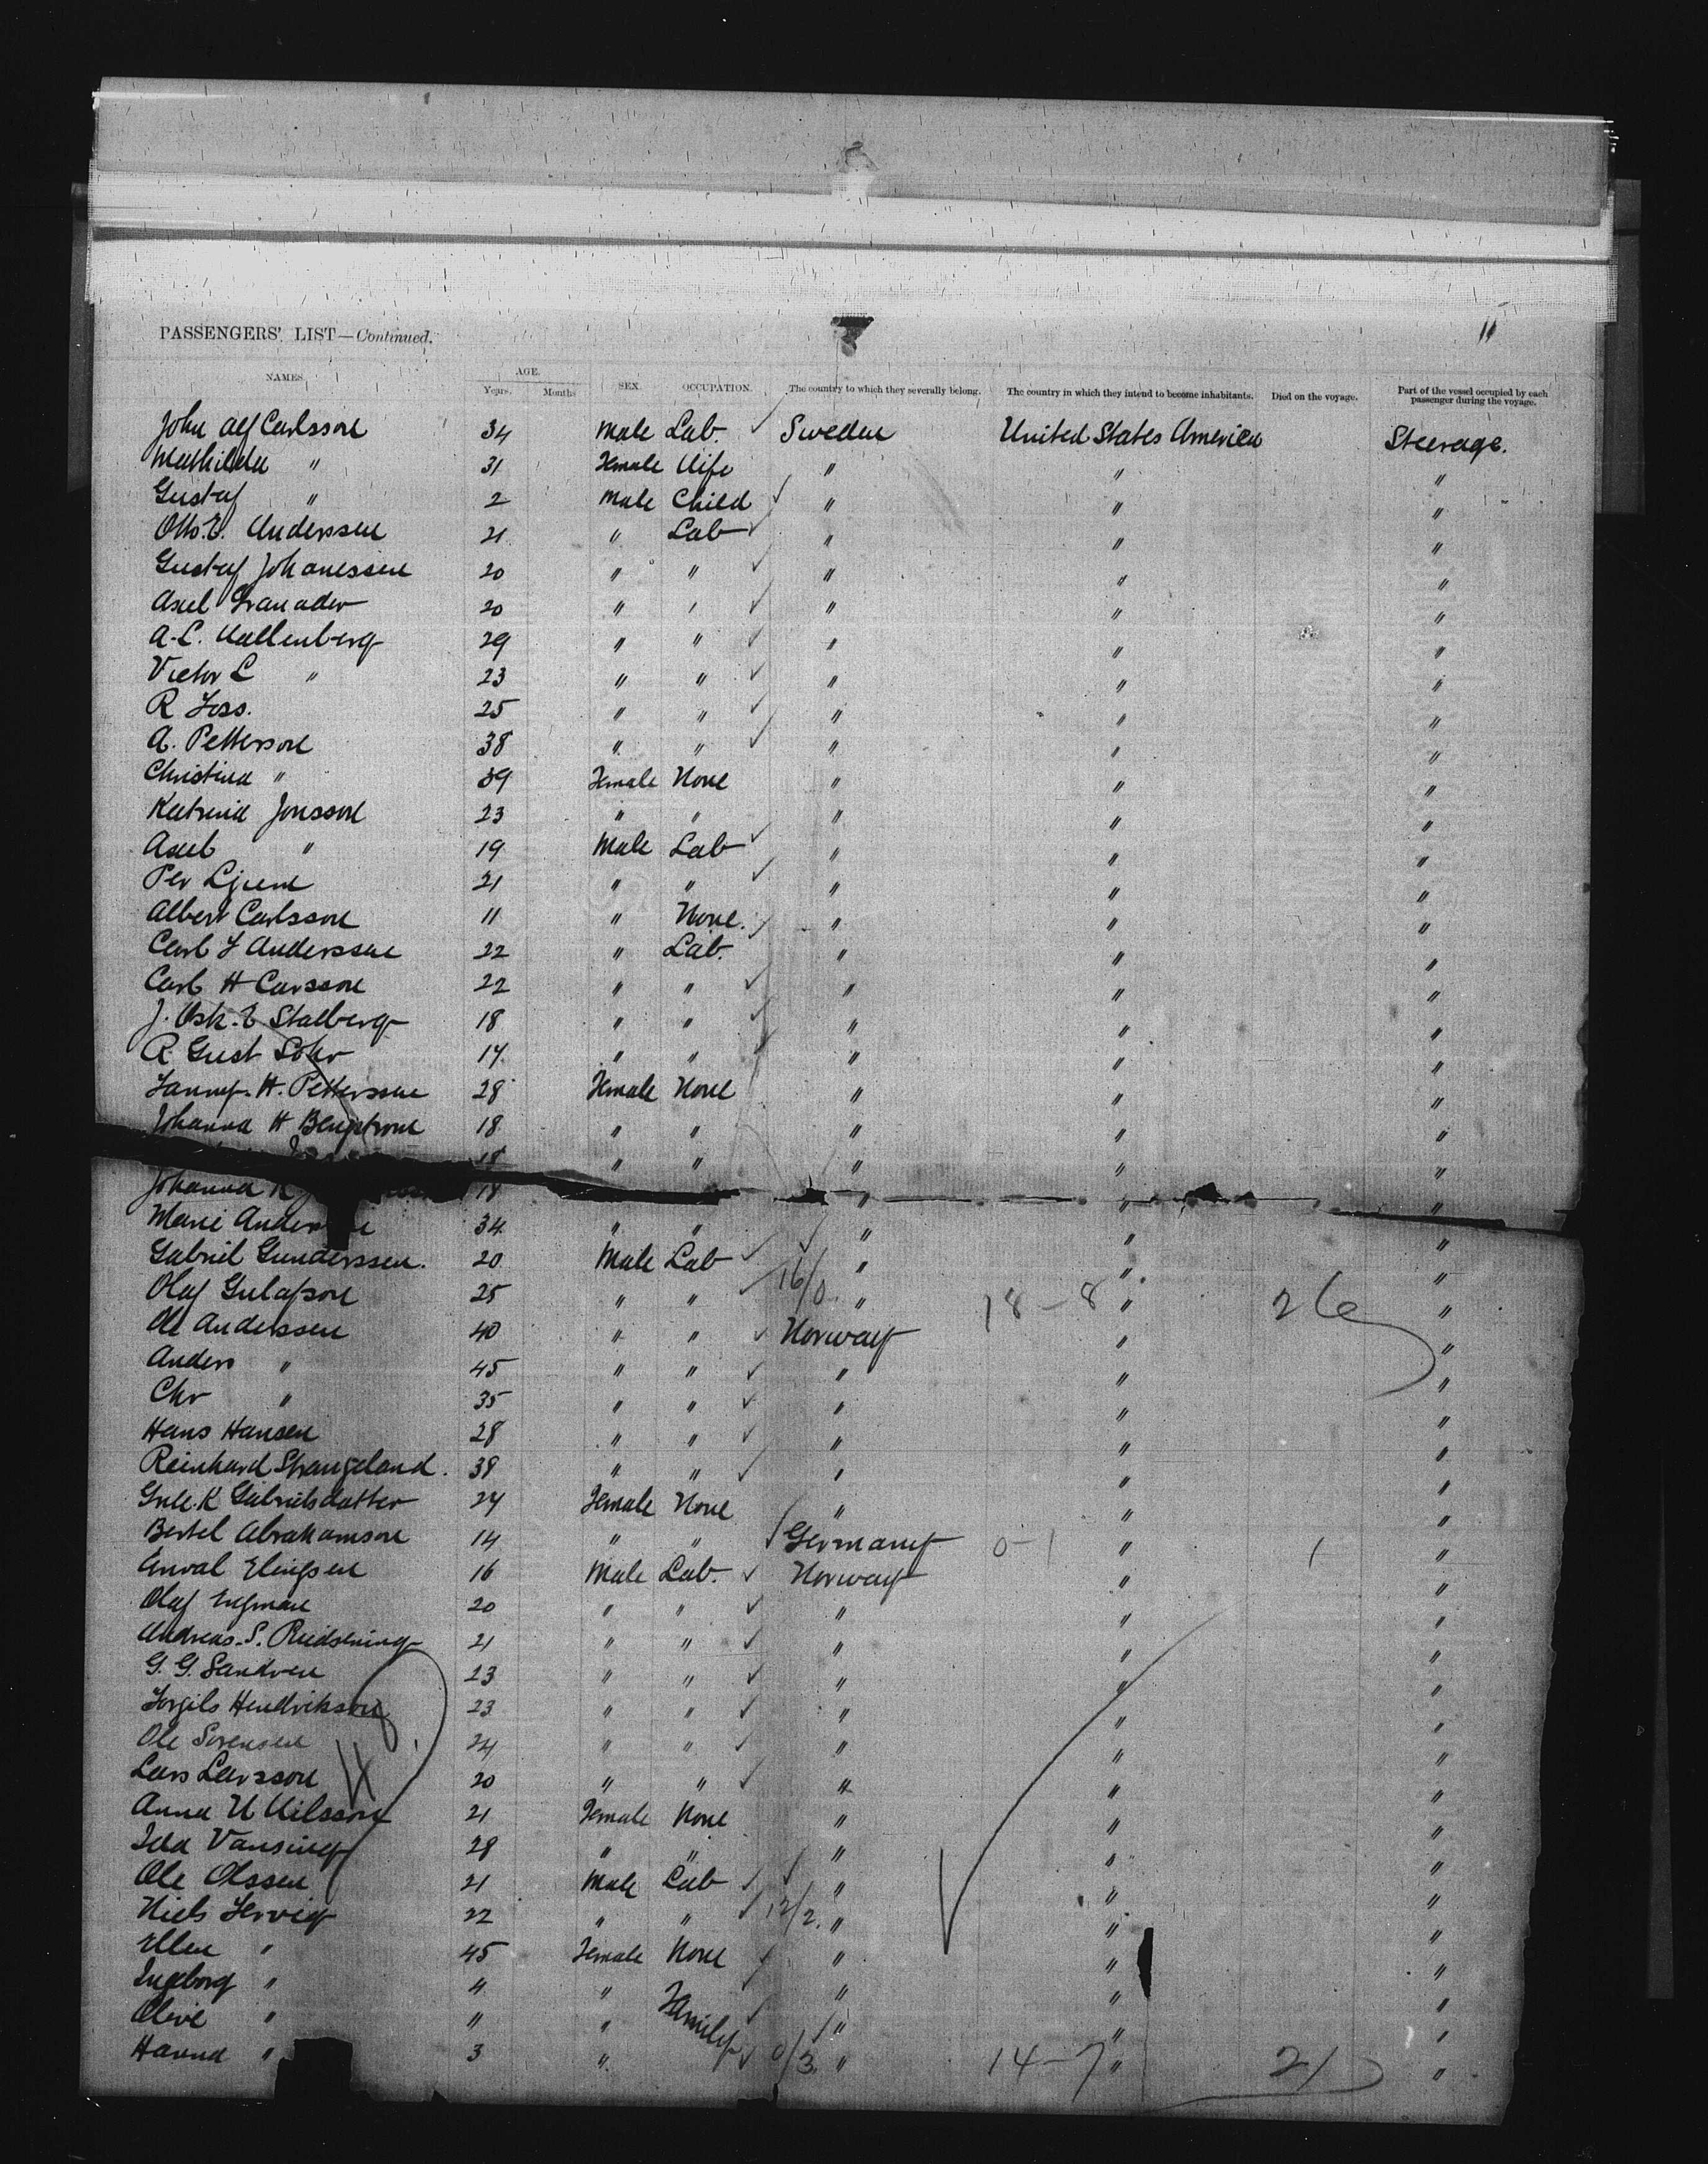 11
PASSENGERS' LIST—Continued.
NAMES. AGE. SEX. OCCUPATION. The country to which they severally belong. The country in which they intend to become inhabitants. Died on the voyage. Part of the vessel occupied by each passenger during the voyage.
Years. Months
John Alf Carlsson 34 Male Lab. Sweden United States America Steerage.
Mathilda " 31 Female Wife " " "
Gustaf " 2 Male Child " " "
Otto. E. Anderssen 21 " Lab " " "
Gustaf Johanessen 20 " " " " "
Axel Granader 20 " " " " "
A. L. Wallenberg 29 " " " " "
Victor L " 23 " " " " "
R Foss. 25 " " " " "
A. Petterson 38 " " " " "
Christina " 39 Female None " " "
Katrina Jonsson 23 " " " " "
Axel " 19 Male Lab " " "
Per Ljung 21 " " " " "
Albert Carlsson 11 " None. " " "
Carl F Anderssen 22 " Lab. " " "
Carl H Carsson 22 " " " " "
J. Osk. E Stalberg 18 " " " " "
R. Gust Lohr 14 " " " " "
Fanny. H. Petterssen 28 Female None " " "
Johanna H Bengstrom 18 " " " " "
18 " " " " "
Johanna K 18 " " "
Marie 34 " " " " "
Gabriel Gunderssen. 20 Male Lab " " "
Olaf Gulafson 25 " " 16/0 " 18-8 " 26 "
Ole Anderssen 40 " " Norway " "
Anders " 45 " " " " "
Chr " 35 " " " " "
Hans Hansen 28 " " " " "
Reinhard Strangeland. 38 " " " " "
K Gabrielsdatter 24 Female None " " "
Bertel Abrahamson 14 " " Germany 0-1 " 1 "
Enval Elingsen 16 Male Lab. Norway " "
Olaf Engman 20 " " " " "
Andreas. S. 21 " " " " "
G. G. Sandven 23 " " " " "
Torgils Hendrikson 23 " " " " "
Ole Sorensen 24 " " " " "
Lars Larsson 20 " " " " "
Anna N Nilsson 21 Female None " " "
Ida Vansing 28 " " " " "
Ole Olssen 21 Male Lab " " "
Niels Hervig 22 " " 12/2. " " "
Ellen " 45 Female None " " "
Ingeborg " 4 " Family " " "
Olive " " " " " "
Hanna " 3 " 0/3. " 14-7 " 21 "